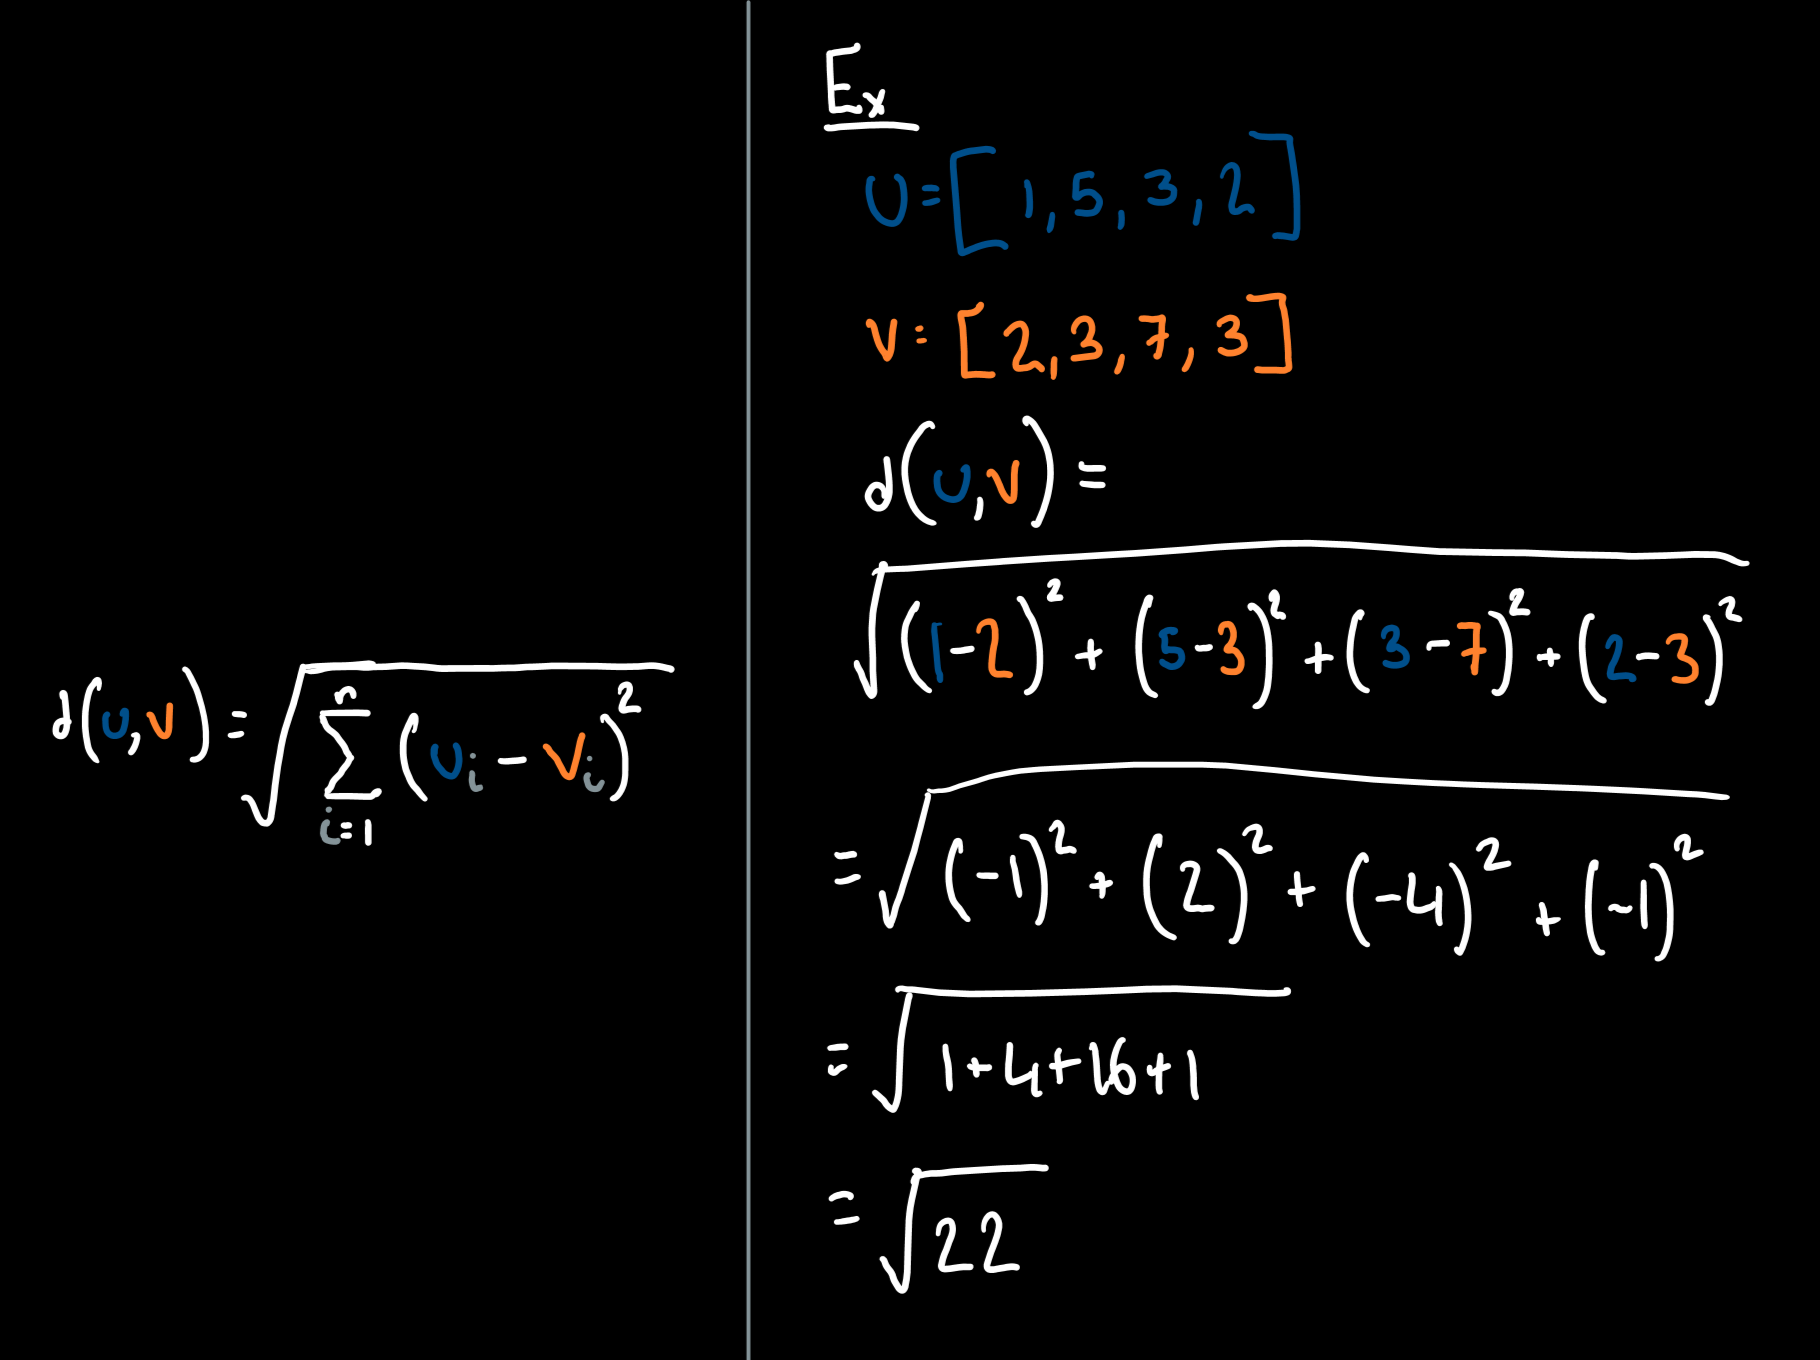 d(u,v) = √(∑_{i=1}^{n} (u_i − v_i)²)
Ex
U = [1, 5, 3, 2]
V = [2, 3, 7, 3]
d(u,v) =
√((1-2)² + (5-3)² + (3-7)² + (2-3)²)
= √((-1)² + (2)² + (-4)² + (-1)²)
= √(1+4+16+1)
= √22